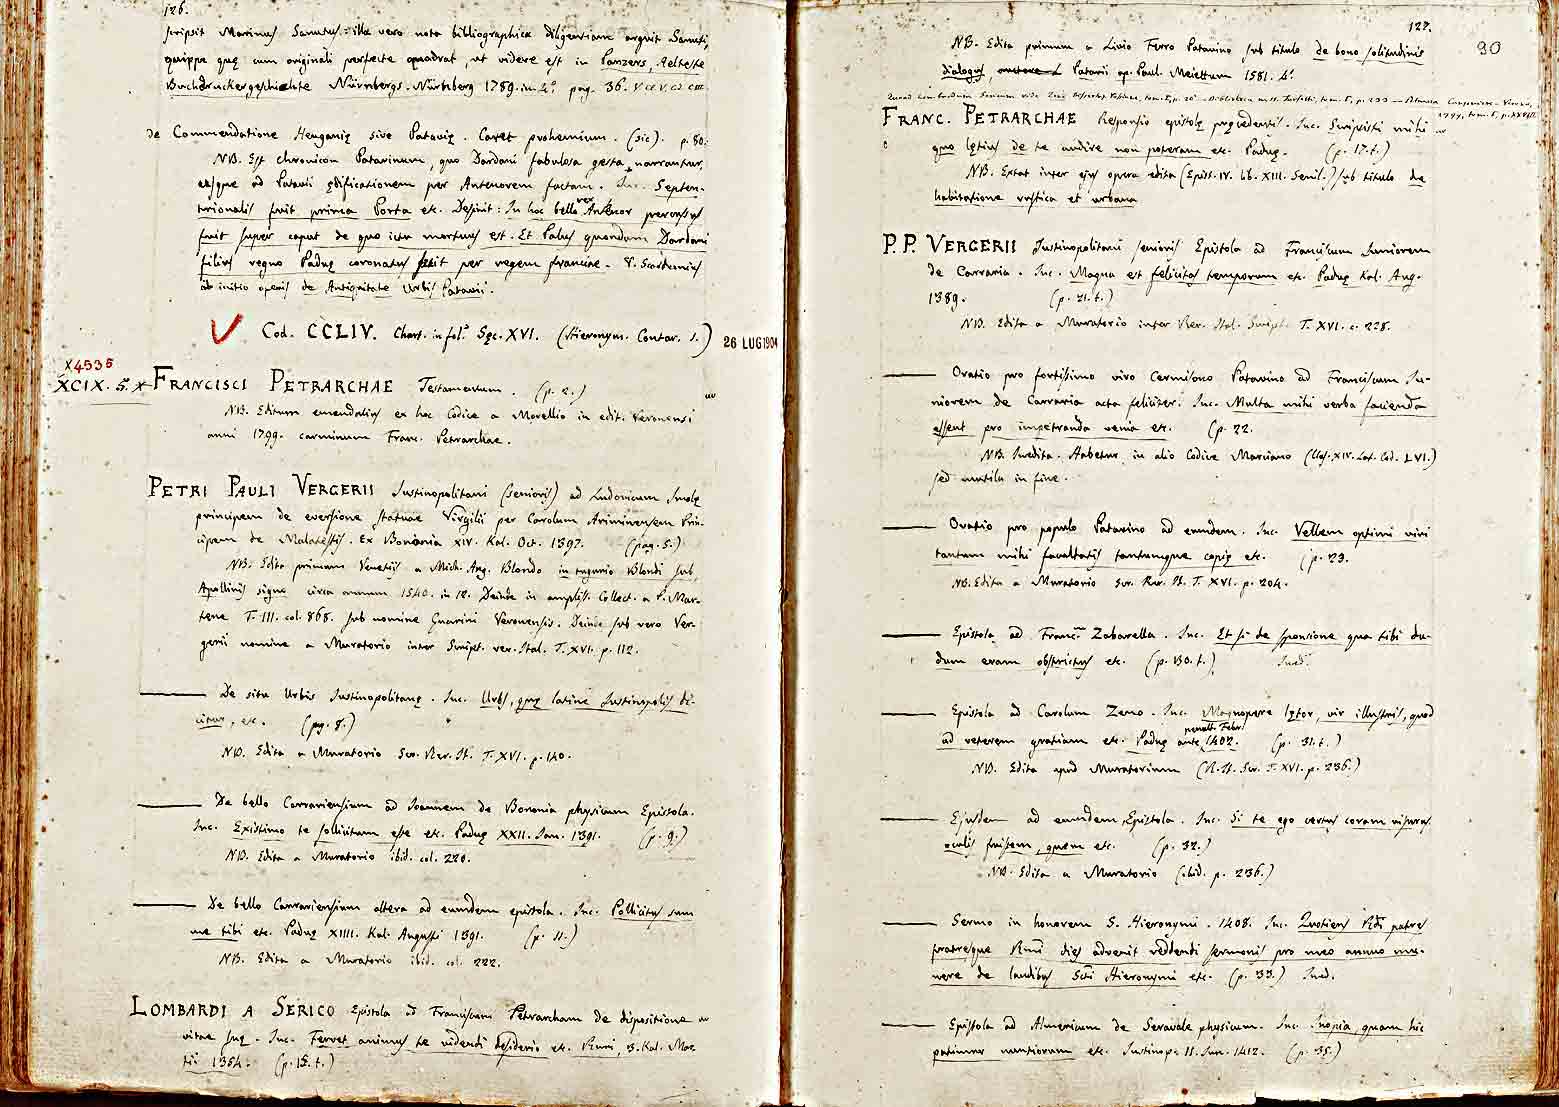 126.
scripsit Marinus Sanutus: illa vero nota bibliographica diligentiam arguit Sanuti,
quippe quę cum originali perfecte quadrat, ut videre est in Panzers, Aelteste
Buchdruckergeschichte Nürnbergs. Nürnberg 1789. in 4.º pag. 36.
de Commendatione Heuganię sive Patavię. Caret prohemium. (sic). p. 80.
NB. Est chronicon Patavinum, quo Dardani fabulosa gesta narrantur,
usque ad Patavii ędificationem per Antenorem factam. Inc. Septen-
trionalis fuit prima Porta etc. Desinit: In hoc bello rex Antenor percussus
fuit super caput de quo ictu mortuus est. Et Palus quondam Dardani
filius regno Paduę coronatus fuit per regem franciae. V. Scardeonius
ab initio operis de Antiquitate Urbis Patavii.
Cod. CCLIV. Chart. in fol.º Sęc. XVI. (Hieronym. Contar. s.) 26 LUG 1904
X4535
XCIX. 5. X FRANCISCI PETRARCHAE Testamentum. (p. 2.)
NB. Editum emendatius ex hoc Codice a Morellio in edit. Veronensi
anni 1799. carminum Franc. Petrarchae.
PETRI PAULI VERGERII Justinopolitani (senioris) ad Ludovicum Imolę
principem de eversione statuae Virgilii per Carolum Ariminensem Prin-
cipem de Malatestis. Ex Bononia XIV. Kal. Oct. 1397. (pag. 5.)
NB. Edita primum Venetiis a Mich. Ang. Blondo in tugurio Blondi sub
Apollinis signo circa annum 1540. in 12. Deinde in ampliss. Collect. a P. Mar-
tene T. III. col. 868. sub nomine Guarini Veronensis. Deinde sub vero Ver-
gerii nomine a Muratorio inter Script. rer. Ital. T. XVI. p. 112.
De situ Urbis Justinopolitanę. Inc. Urbs, quę latine Justinopolis di-
citur, etc. (pag. 8.)
NB. Edita a Muratorio Scr. Rer. It. T. XVI. p. 140.
De bello Carrariensium ad Joannem de Bononia physicum Epistola.
Inc. Existimo te sollicitum esse etc. Paduę XXII. Jan. 1391. (p. 9.)
NB. Edita a Muratorio ibid. col. 220.
De bello Carrariensium altera ad eundem epistola. Inc. Pollicitus sum
me tibi etc. Paduę XIIII. Kal. Augusti 1391. (p. 11.)
NB. Edita a Muratorio ibid. col. 222.
LOMBARDI A SERICO Epistola ad Franciscum Petrarcham de dispositione
vitae suę. Inc. Fervet animus te videndi desiderio etc. 3. Kal. Mar-
tii 1364. (p. 15. t.)
127.
90
NB. Edita primum a Livio Ferro Patavino sub titulo de bono solitudinis
dialogus, Patavii ap. Paul. Meiettum 1581. 4.º
FRANC. PETRARCHAE Responsio epistolę pręcedenti. Inc. Scripsisti mihi
quo lętius de te audire non poteram etc. Paduę. (p. 17. t.)
NB. Extat inter ejus opera edita (Epist. IV. lib. XIII. Senil.) sub titulo de
habitatione rustica et urbana
P. P. VERGERII Justinopolitani senioris Epistola ad Franciscum Juniorem
de Carraria. Inc. Magna est felicitas temporum etc. Paduę Kal. Aug.
1389. (p. 21. t.)
NB. Edita a Muratorio inter Rer. Ital. Script. T. XVI. c. 228.
Oratio pro fortissimo viro Cermisono Patavino ad Franciscum Ju-
niorem de Carraria acta feliciter. Inc. Multa mihi verba facienda
essent pro impetranda venia etc. (p. 22.
NB. Inedita. Habetur in alio Codice Marciano (Class. XIV. Lat. Cod. LVI.)
sed mutila in fine.
Oratio pro populo Patavino ad eundem. Inc. Vellem optimi viri
tantam mihi facultatis tantumque copię etc. (p. 23.
NB. Edita a Muratorio Scr. Rer. It. T. XVI. p. 204.
Epistola ad Franc.m Zabarella. Inc. Et si de sponsione qua tibi du-
dum eram obstrictus etc. (p. 30. t.) Ined.
Epistola ad Carolum Zeno. Inc. Magnopere lętor, vir illustris, quod
ad veterem gratiam etc. Paduę penult. Febr. 1402. (p. 31. t.)
NB. Edita apud Muratorium (R. It. Scr. T. XVI. p. 236.)
Ejusdem ad eundem Epistola. Inc. Si te ego certus coram visurus
oculis fuissem, quem etc. (p. 32.)
NB. Edita a Muratorio (ibid. p. 236.)
Sermo in honorem S. Hieronymi. 1408. Inc. Quotiens Rdi patres
fratresque Rmi dies advenit reddendi sermonis pro meo annuo mu-
nere de laudibus Scti Hieronymi etc. (p. 33.) Ined.
Epistola ad Almericum de Seravale physicum. Inc. Inopia quam hic
patimur nuntiorum etc. Justinop. 11. Jun. 1412. (p. 35.)